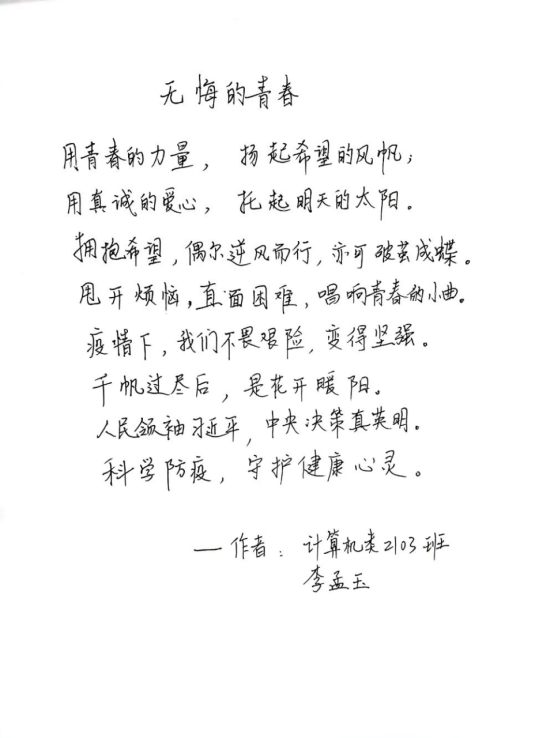 无悔的青春
用青春的力量，扬起希望的风帆；
用真诚的爱心，托起明天的太阳。
拥抱希望，偶尔逆风而行，亦可破茧成蝶。
甩开烦恼，直面困难，唱响青春的小曲。
疫情下，我们不畏艰险，变得坚强。
千帆过尽后，是花开暖阳。
人民领袖习近平，中央决策真英明。
科学防疫，守护健康心灵。
—作者：计算机类2103班
李孟玉